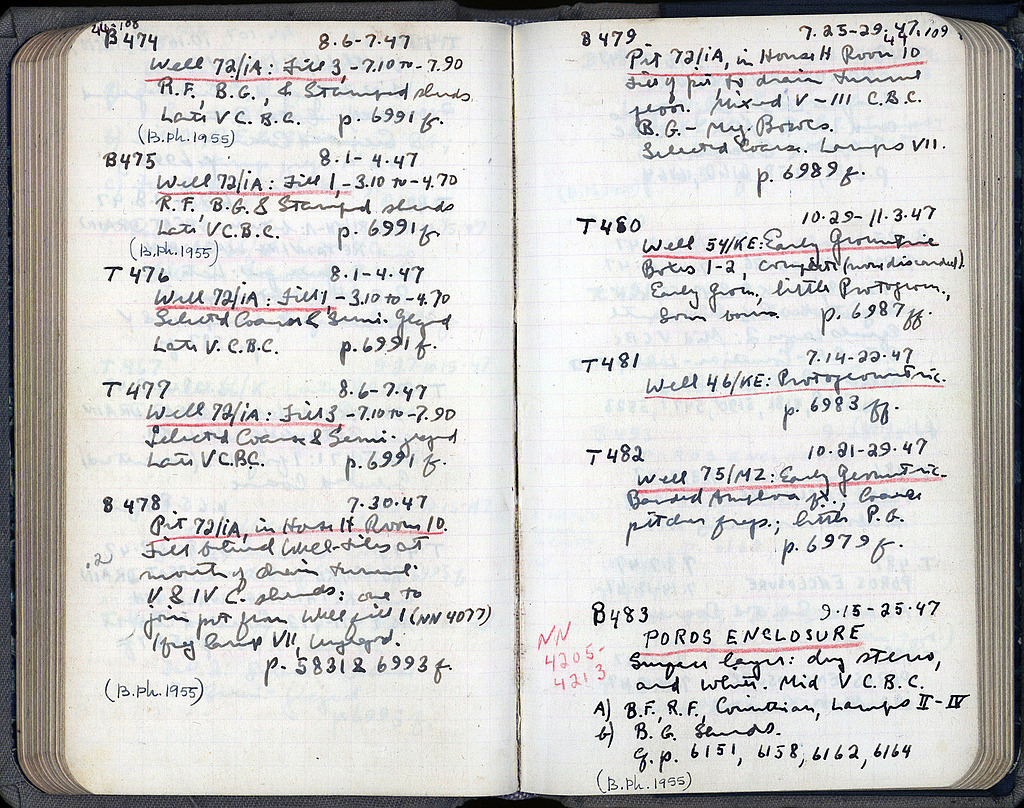 B 474 8.6-7.47
Well 72/1A: Fill 3, -7.10 to -7.90
R.F., B.G., & Stamped sherds
Late V C. B.C. p. 6991 f.
(B.Ph. 1955)
B 475 8.1-4.47
Well 72/1A: Fill 1, -3.10 to -4.70
R.F., B.G. & Stamped sherds
Late V C. B.C. p. 6991 f.
(B.Ph. 1955)
T 476 8.1-4.47
Well 72/1A: Fill 1, -3.10 to -4.70
Selected Coarse & Semi. glazed
Late V. C. B.C. p. 6991 f.
T 477 8.6-7.47
Well 72/1A: Fill 3, -7.10 to -7.90
Selected Coarse & Semi. glazed
Late V C. B.C. p. 6991 f.
B 478 7.30.47
Pit 72/1A, in House H Room 10.
Fill behind Well-tiles at
mouth of drain tunnel.
V & IV C. sherds; one to
join pot from Well fill 1 (NN 4077)
1 frag Lamp VII, unglazed.
p. 5831 & 6993 f.
(B.Ph. 1955)
B 479 7.25-29.47 109
Pit 72/1A, in House H Room 10
Fill of pit to drain tunnel
floor. Mixed V - III C. B.C.
B.G. - Meg. Bowls.
Selected Coarse. Lamps VII.
p. 6989 f.
T 480 10.29-11.3.47
Well 54/KE: Early Geometric
Boxes 1-2, complete (none discarded)
Early Geom., little Protogeom.,
Some bones. p. 6987 ff.
T 481 7.14-22.47
Well 46/KE: Protogeometric.
p. 6983 ff.
T 482 10.21-29.47
Well 75/MZ: Early Geometric.
Banded Amphora fr., Coarse
pitcher frags.; little P.G.
p. 6979 f.
B 483 9.15-25.47
POROS ENCLOSURE
NN 4205-4213
Surface layer: dug stereo,
and white. Mid V C. B.C.
A) B.F., R.F., Corinthian, Lamps II-IV
b) B.G. Sherds.
Cf. p. 6151, 6158, 6162, 6164
(B.Ph. 1955)